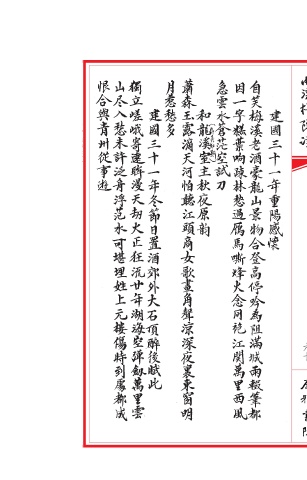 建國三十一年重陽感懷
自笑梅溪老酒豪龍山景物合登高停吟為阻滿城雨報答都
因一字糕葉响疎林愁過雁馬嘶烽火念同袍江關萬里西風
急雲水蒼茫空試刀
和龍溪室主秋夜原韻
蕭森玉露滴天河怕聽江頭商女歌畫角聲涼深夜裏東窗明
月惹愁多
建國三十一年冬節日置酒郊外大石頂醉後賦此
獨立嵯峨寄遠聯漫天劫火正狂汎廿年湖海空彈劍萬里雲
山尽入愁未許泛舟浮范水可堪埋姓上元樓傷時到處都成
恨合與青州從事遊